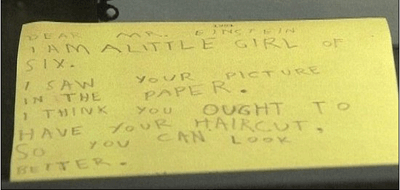 DEAR MR. EINSTEIN
I AM A LITTLE GIRL OF
SIX.
I SAW YOUR PICTURE
IN THE PAPER.
I THINK YOU OUGHT TO
HAVE YOUR HAIRCUT,
SO YOU CAN LOOK
BETTER.